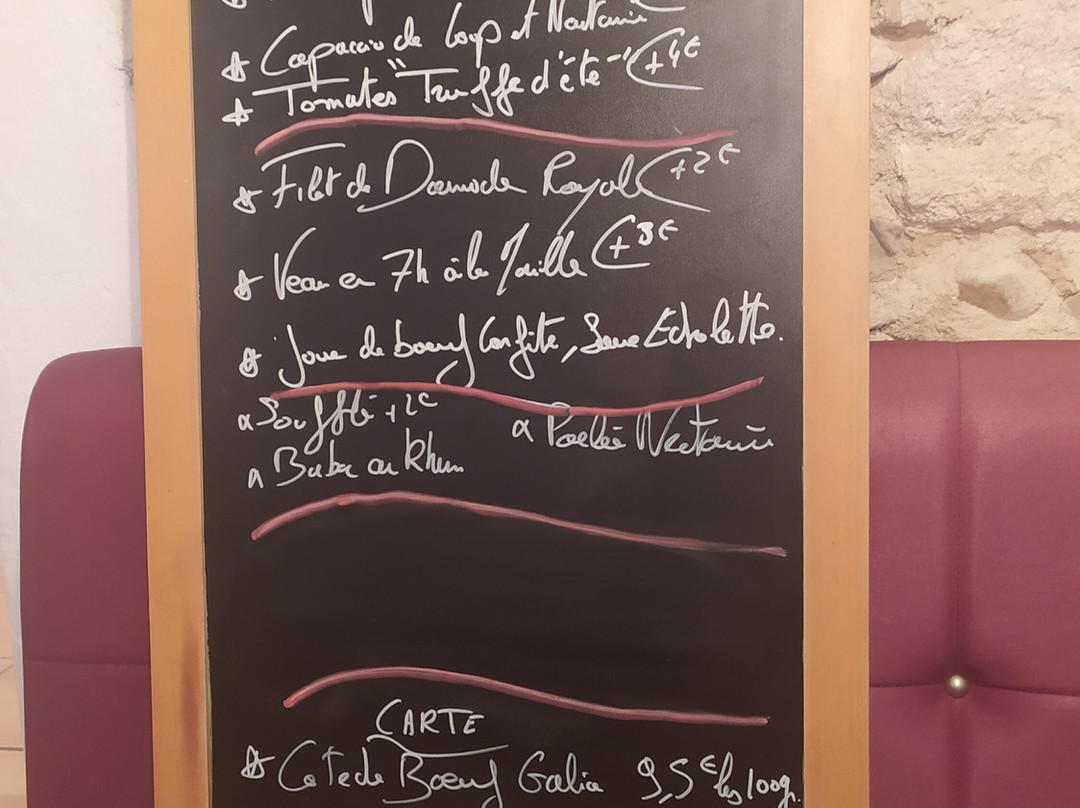 Capaccio de Loup et Nectarine
Tomates "Truffe d'été" (+4€
Filet de Daurade Royale (+2€
Veau en 7h à la
Joue de boeuf Confite, Sauce Echalotte.
Soufflé +2€
Poelée Nectarine
Baba au Rhum
CARTE
Cote de Boeuf Galice 9,5€ les 100gr.